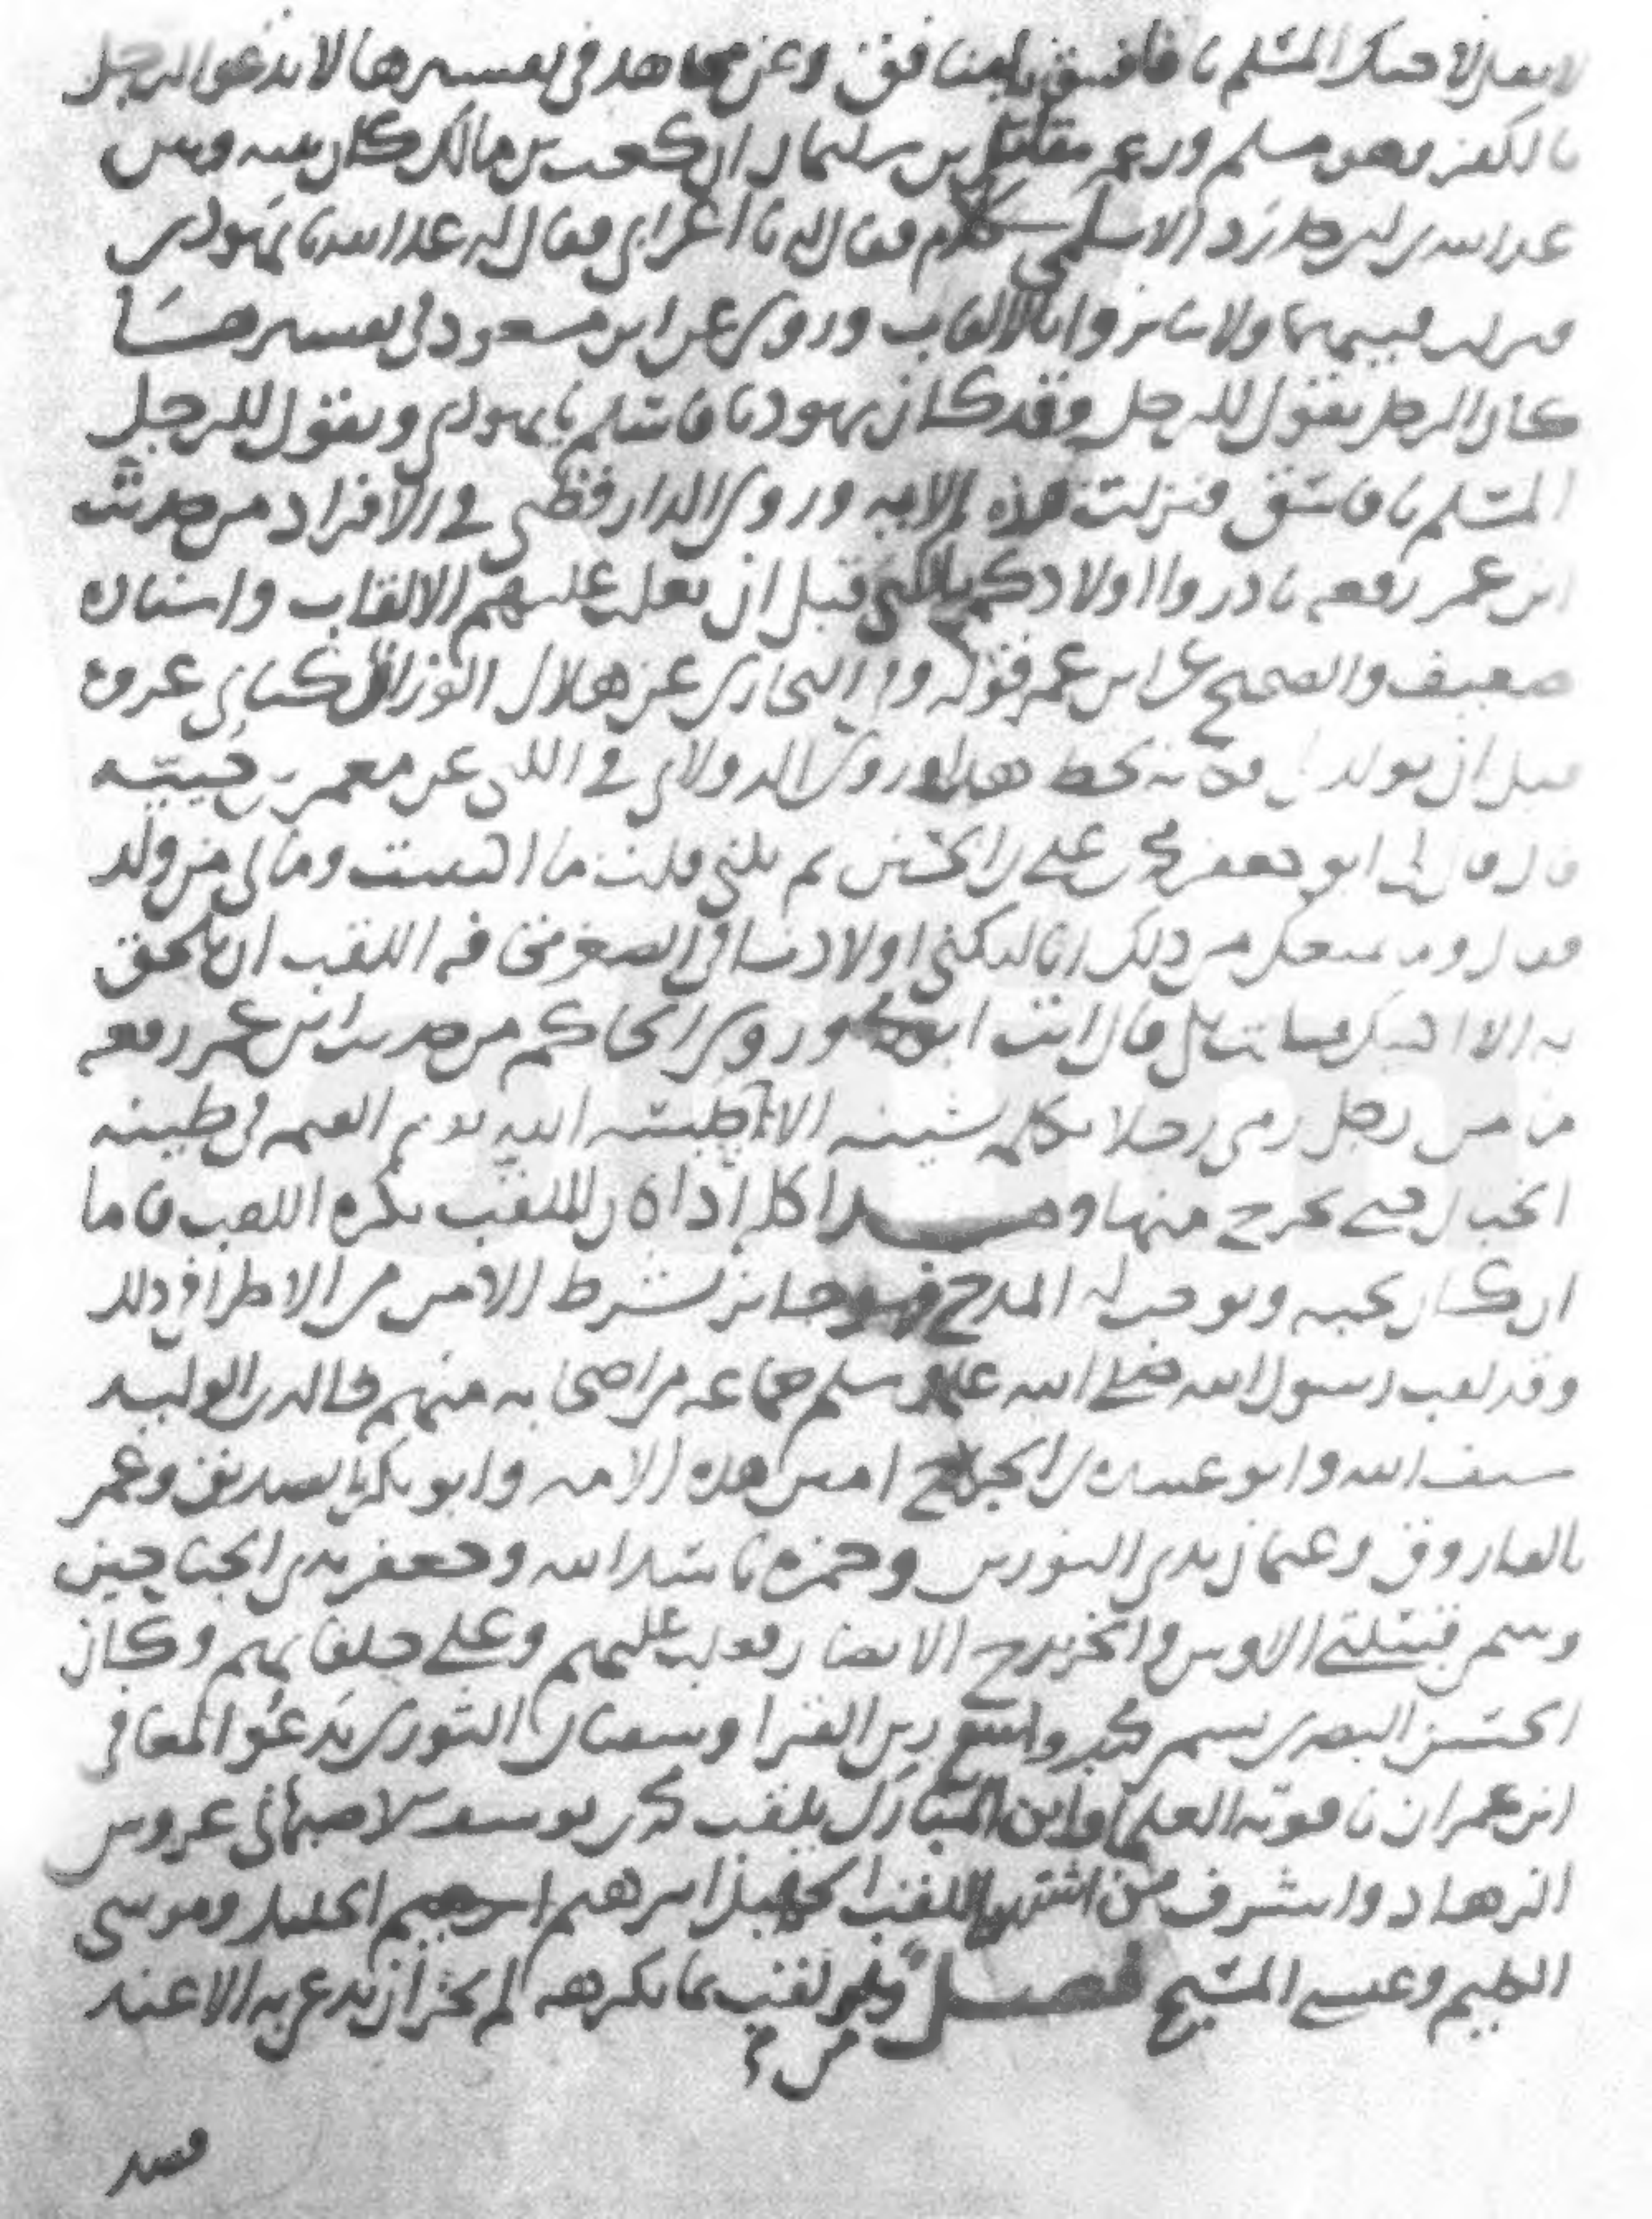 لا تقل لاخيك المسلم يا فاسق يا منافق وعن مجاهد في تفسيرها لا تدعو الرجل
بالكفر وهو مسلم وزعم مقاتل بن سليمان ان كعب بن مالك كان بينه وبين
عبد الله بن ابي حدرد الاسلمي كلام فقال له يا اعرابي فقال له عبد الله يا يهودي
فنزلت فيهما ولا تنابزوا بالالقاب وروي عن ابن مسعود في تفسيرها
كان الرجل يقول للرجل وقد كان يهوديا فاسلم يا يهودي ويقول للرجل
المسلم يا فاسق فنزلت هذه الاية وروى الدارقطني في الافراد من حديث
ابن عمر رفعه بادروا اولادكم بالكنى قبل ان تغلب عليهم الالقاب واسناده
ضعيف والصحيح عن ابن عمر قوله والبخاري عن هلال الوزان كناني عروة
قبل ان يولد لي وروى الدولابي في الكنى عن معمر بن خيثم
قال قال لي ابو جعفر محمد بن علي بن الحسين بم تكنى قلت ما اكتنيت وما لي من ولد
فقال وما يمنعك من ذلك انا لنكني اولادنا في الصغر مخافة اللقب ان يلحق
به قال انت ابو وروى الحاكم من حديث ابن عمر رفعه
ما من رجل رمى رجلا بكلمة تشينه الا حبسه الله يوم القيمة في طينة
الخبال حتى يخرج منها وهذا كله اذا كان الملقب يكره اللقب فاما
ان كان يحبه ويوجب له المدح فهو جائز بشرط الامن من الاطرا في ذلك
وقد لقب رسول الله صلى الله عليه وسلم جماعة من اصحابه منهم خالد بن الوليد
سيف الله وابو عبيدة بن الجراح امين هذه الامة وابو بكر بالصديق وعمر
بالفاروق وعثمان بذي النورين وحمزة باسد الله وجعفر بذي الجناحين
وسمى قبيلتي الاوس والخزرج الانصار فغلب عليهم وعلى حلفائهم وكان
الحسن البصري يسمي محمد بن واسع زين القرا وسفيان الثوري يدعو المعافى
ابن عمران ياقوتة العلما وابن المبارك يلقب محمد بن يوسف الاصبهاني عروس
الزهاد واشرف من اشتهر باللقب الجليل ابراهيم الخليل وموسى
الكليم وعيسى المسيح فصل ومن لقب بما يكرهه لم يجز ان يدعى به الا عند
قصد